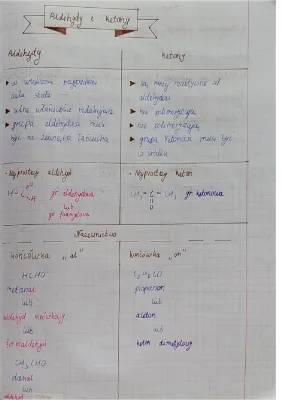 Aldehydy i ketony
Aldehydy
w większości przypadków
ciała stałe
silne właściwości redukujące
grupa aldehydowa musi
być na
Ketony
są mniej reaktywne od
aldehydów
nie polimeryzują
nie polimeryzują
grupa ketonowa musi być
w środku
Najprostszy aldehyd
H-C
O
H
gr. aldehydowa
lub
gr. formylowa
Najprostszy keton
CH3-C-CH3
O
gr. ketonowa
Nazewnictwo
końcówka „al"
HCHO
metanal
lub
aldehyd mrówkowy
lub
formaldehyd
CH3CHO
etanal
lub
aldehyd
końcówka „on"
propanon
lub
aceton
lub
keton dimetylowy